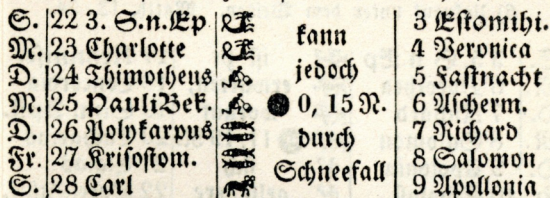 S. 22 3. S. n. Ep kann 3 Estomihi.
M. 23 Charlotte jedoch 4 Veronica
D. 24 Thimotheus 5 Fastnacht
M. 25 Pauli Bek. 0, 15 N. 6 Ascherm.
D. 26 Polykarpus durch 7 Richard
Fr. 27 Krisostom. Schneefall 8 Salomon
S. 28 Carl 9 Apollonia